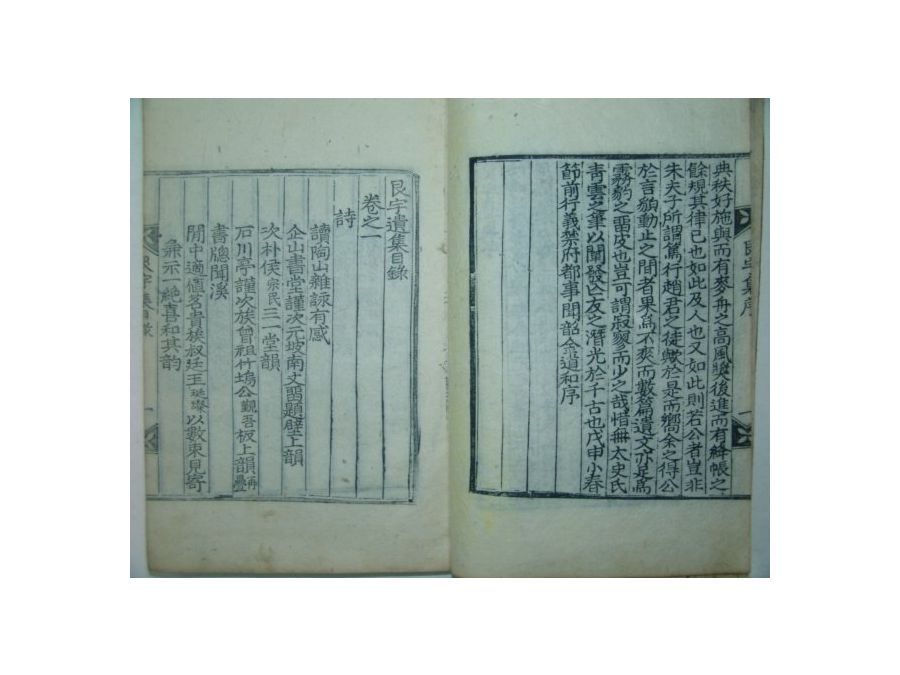 典秩好施與而有麥舟之高風奬後進而有絳帳之
餘規其律己也如此及人也又如此則若公者豈非
朱夫子所謂篤行趙君之徒歟於是而嚮余之得公
於言貌動止之間者果爲不爽而數篇遺文亦是爲
霧豹之留皮也豈可謂寂寥而少之哉惜無太史氏
青雲之筆以闡發亡友之潛光於千古也戊申小春
節前行義禁府都事聞韶金道和序
艮宇集序
艮宇遺集目錄
卷之一
詩
讀陶山雜詠有感
企山書堂謹次元坡南丈留題壁上韻
次朴侯宗民三一堂韻
石川亭謹次族曾祖竹塢公觀吾板上韻再疊
書牕聞溪
閒中適値茗貴族叔廷玉珽璨以數束見寄
兼示一絶喜和其韵
艮宇集目錄
一